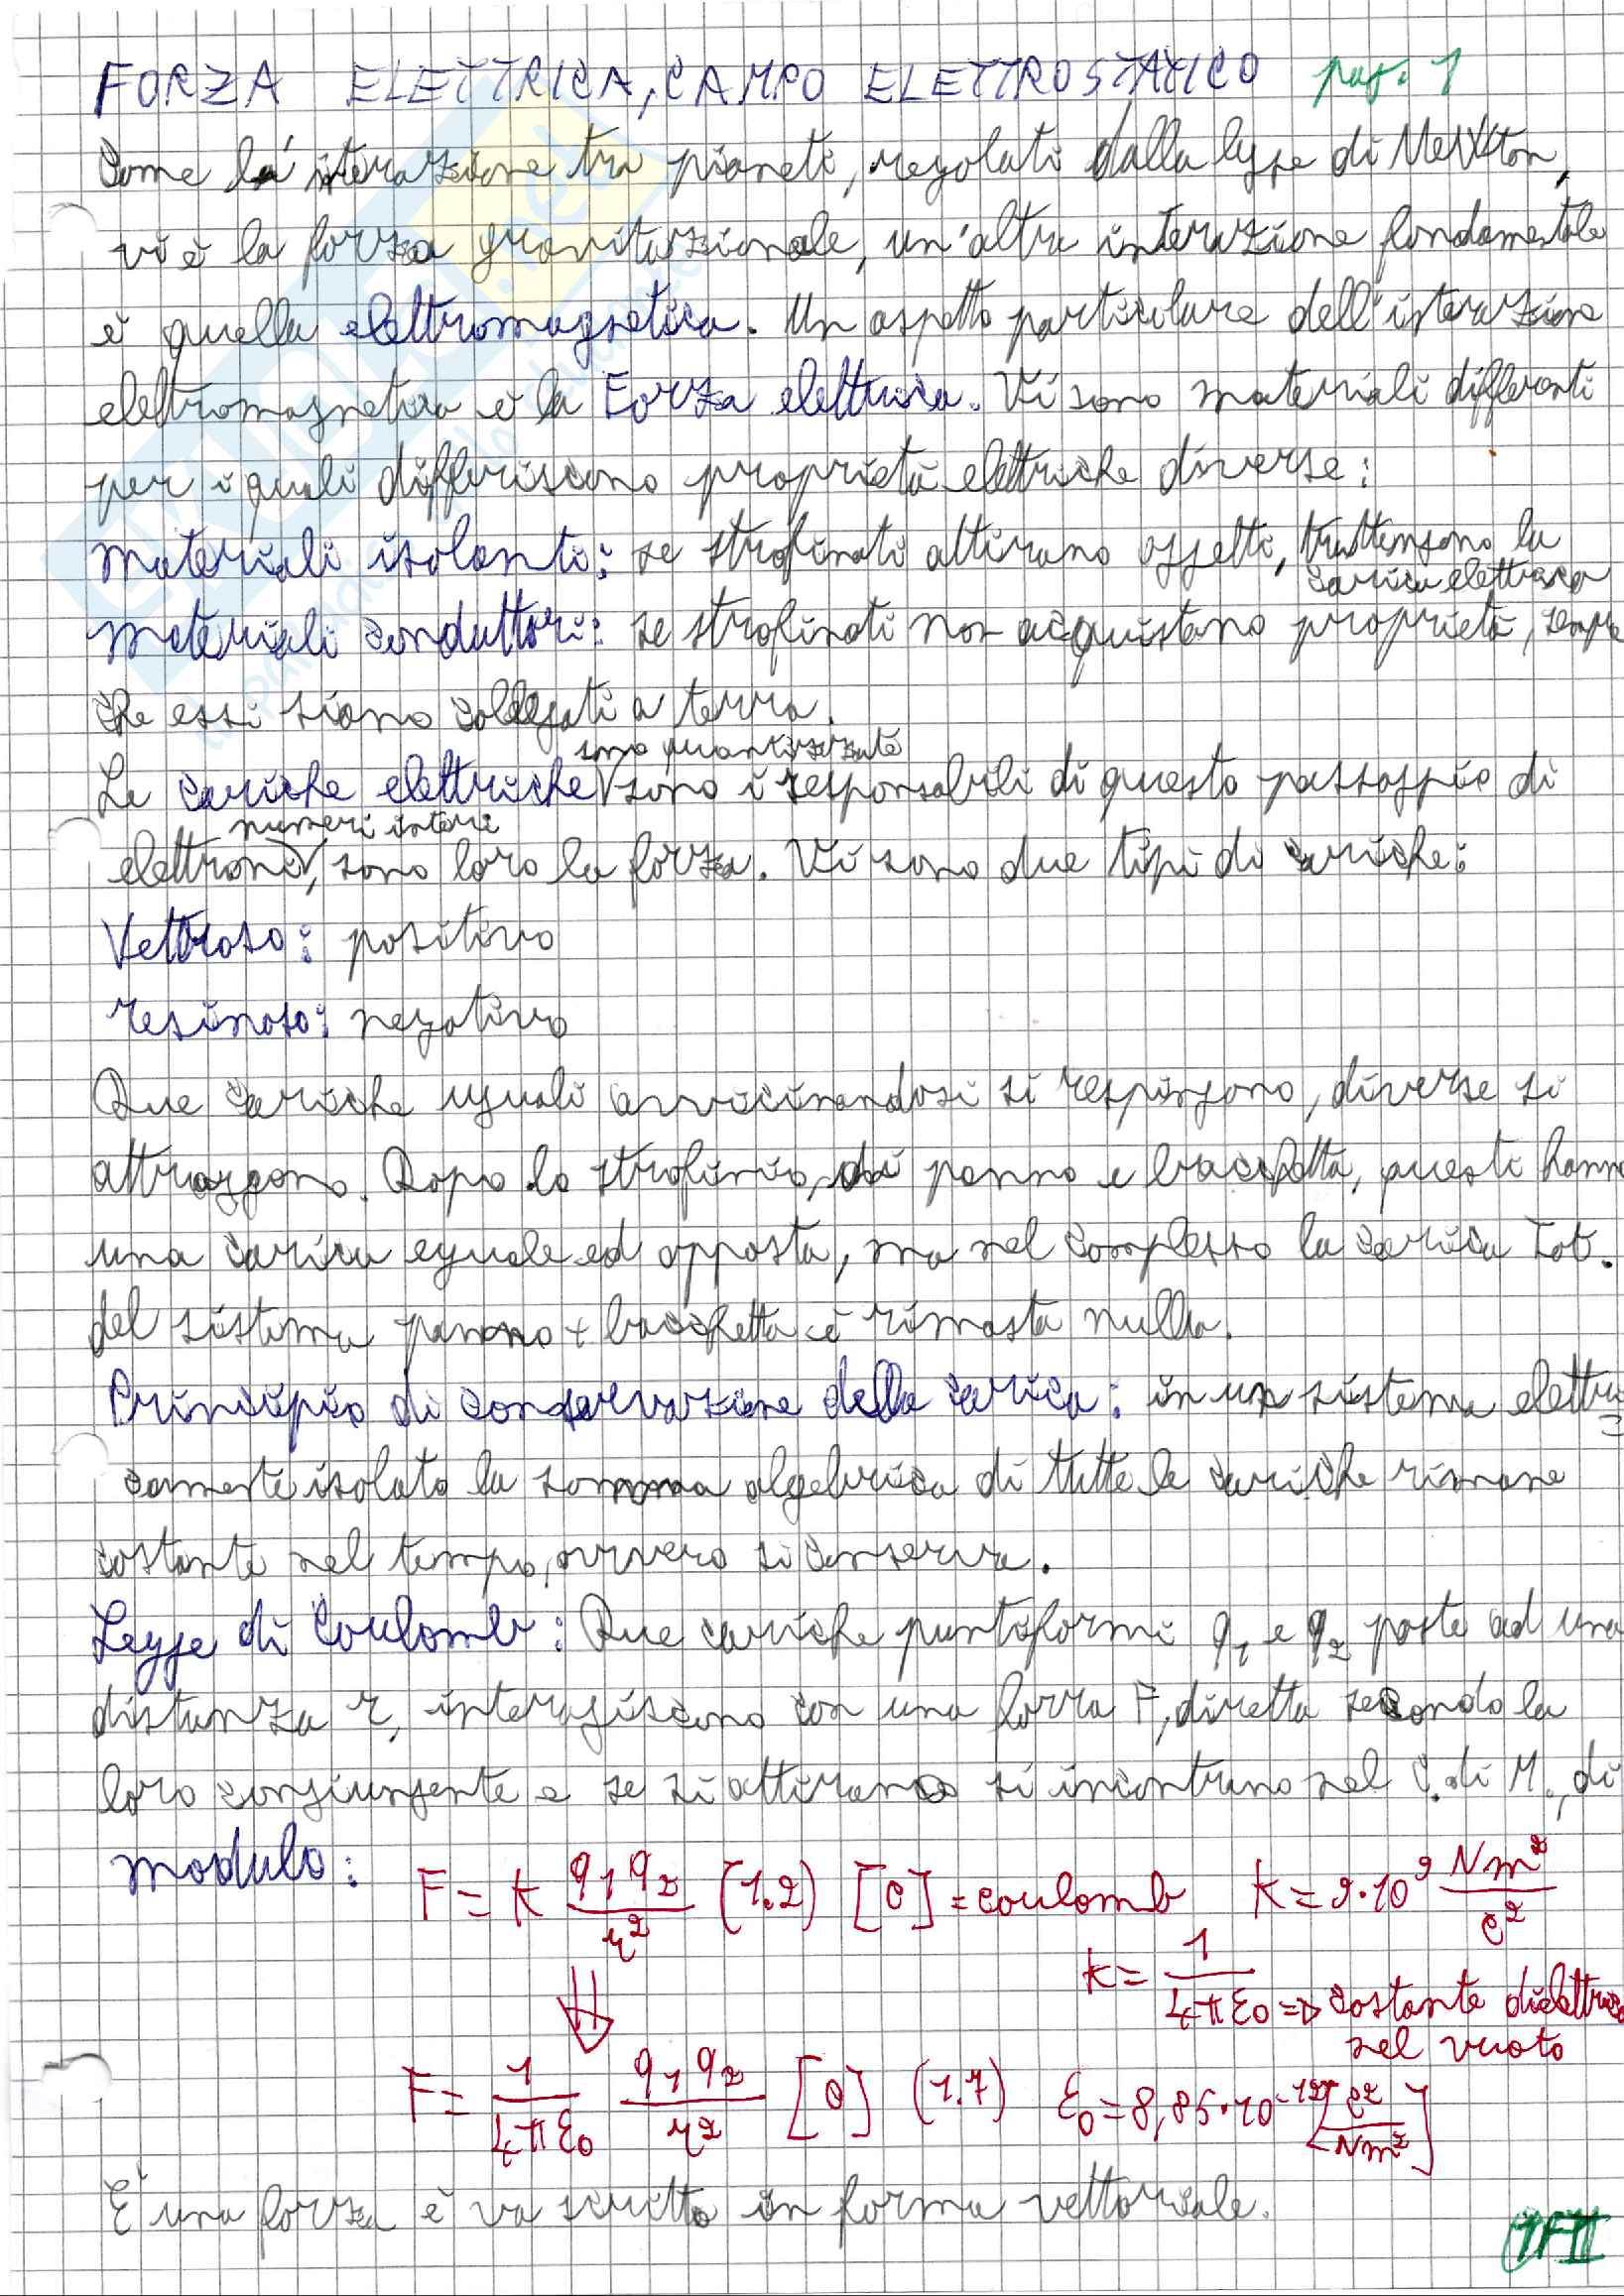 FORZA ELETTRICA, CAMPO ELETTROSTATICO pag. 1
Come la interazione tra pianeti, regolati dalla legge di Newton,
vi è la forza gravitazionale, un'altra interazione fondamentale
è quella elettromagnetica. Un aspetto particolare dell'interazione
elettromagnetica è la Forza elettrica. Vi sono materiali differenti
per i quali differiscono proprietà elettriche diverse:
materiali isolanti: se strofinati attirano oggetti, trattengono la
carica elettrica
materiali conduttori: se strofinati non acquistano proprietà, sempre
che essi siano collegati a terra.
sono quantizzate
Le cariche elettriche sono i responsabili di questo passaggio di
numeri interi
elettroni, sono loro la forza. Vi sono due tipi di cariche:
Vettroso: positivo
resinoso: negativo
Due cariche uguali avvicinandosi si respingono, diverse si
attraggono. Dopo lo strofinio, di panno e bacchetta, questi hanno
una carica eguale ed opposta, ma nel complesso la carica tot.
del sistema panno + bacchetta è rimasta nulla.
Principio di conservazione della carica: in un sistema elettri
camente isolato la somma algebrica di tutte le cariche rimane
costante nel tempo, ovvero si conserva.
Legge di Coulomb: Due cariche puntiformi q1 e q2 poste ad una
distanza r, interagiscono con una forza F, diretta secondo la
loro congiungente e se si attirano si incontrano nel C. di M., di
modulo: F = k q1q2/r² (1.2) [C] = coulomb k = 9·10⁹ Nm²/C²
k = 1/4πε0 => costante dielettrica
nel vuoto
F = 1/4πε0 q1q2/r² [C] (1.7) ε0 = 8,85·10⁻¹² [C²/Nm²]
E' una forza è va scritta in forma vettoriale.
1FII
SKUOLA.net